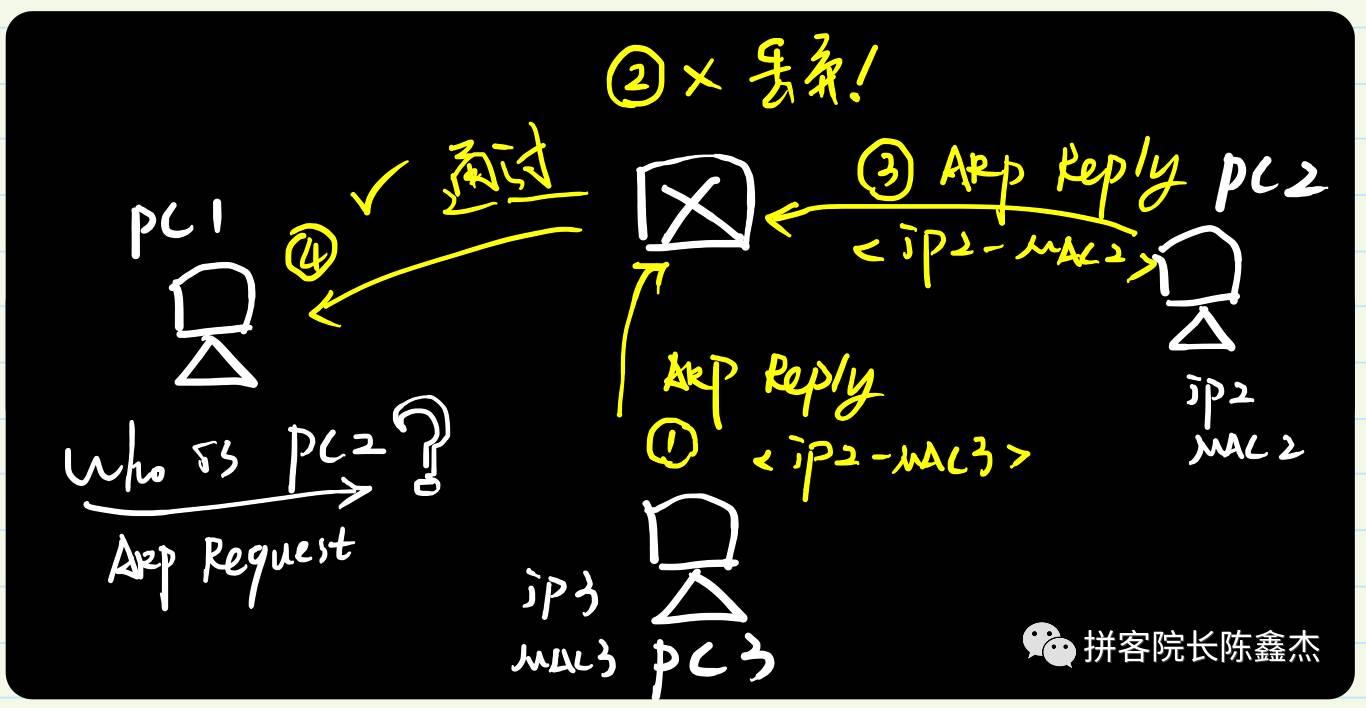 ② × 丢弃!
✓ 通过
③ ARP Reply
PC2
PC1
④
< ip2-MAC2 >
ARP Reply
ip2
MAC2
Who is PC2?
① < ip2-MAC3 >
ARP Request
ip3
MAC3
PC3
拼客院长陈鑫杰